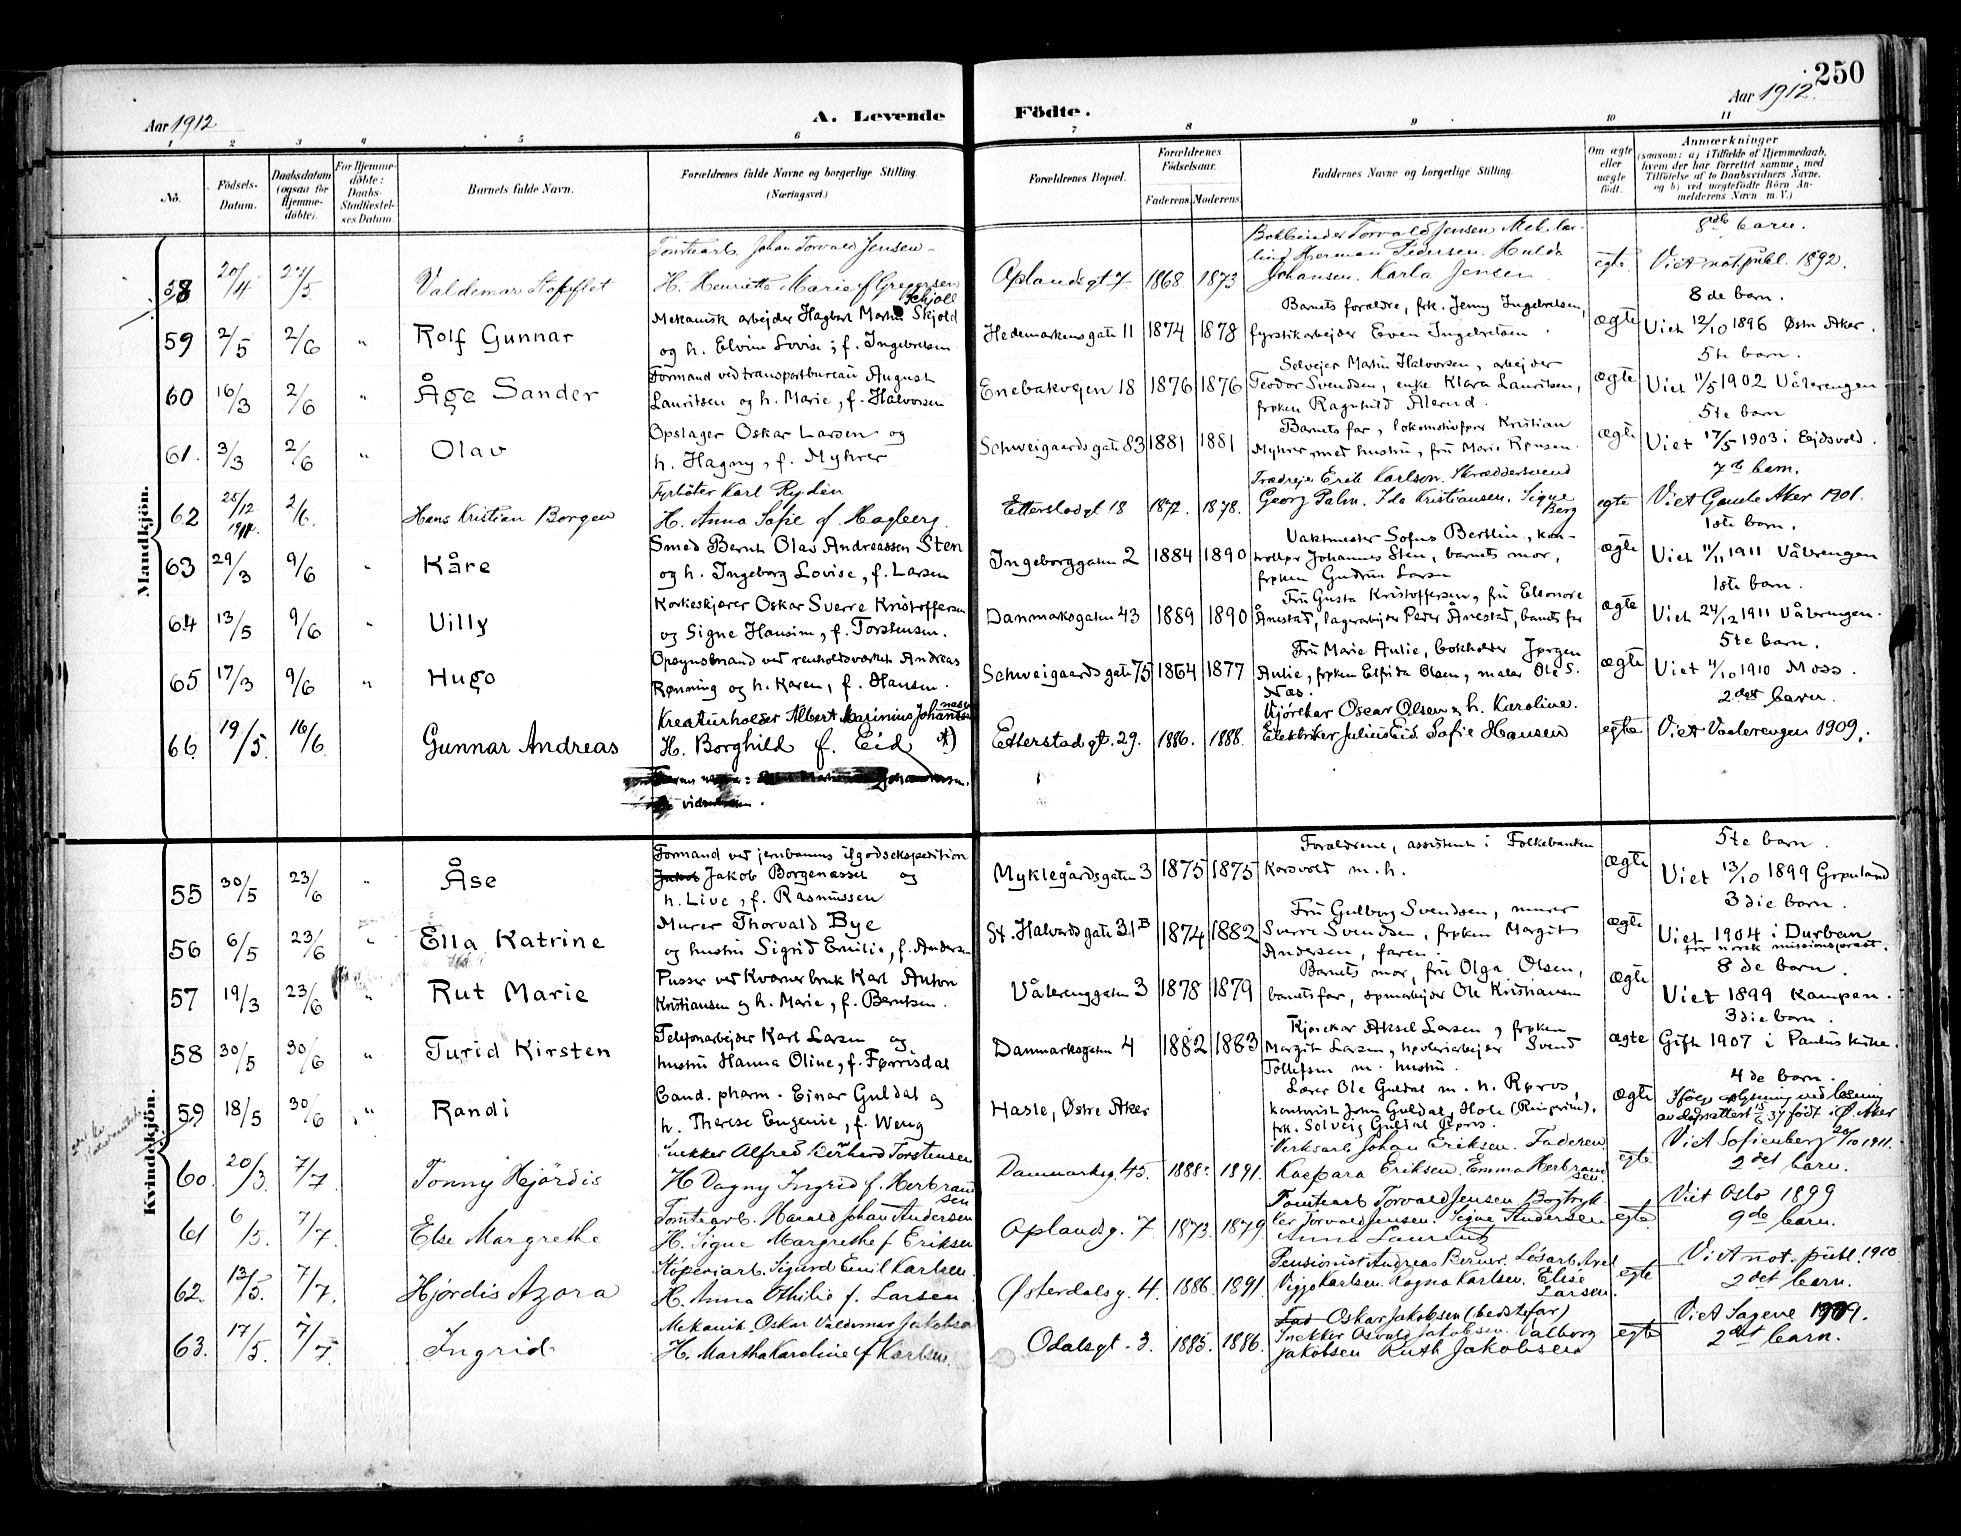 250
Aar 1912
A. Levende Födte.
Aar 1912.
1 2 3 4 5 6 7 8 9 10 11
No.
Födsels-Datum.
Daabsdatum (ogsaa for Hjemmedöbte).
For Hjemmedöbte: Daabs-Stadfæstelses Datum.
Barnets fulde Navn.
Forældrenes fulde Navne og borgerlige Stilling. (Næringsvei.)
Forældrenes Bopæl.
Forældrenes Födselsaar.
Faderens Moderens
Faddernes Navne og borgerlige Stilling.
Om ægte eller uægte födt.
Anmærkninger
(saasom: a) i Tilfælde af Hjemmedaab, hvem der har forrettet samme, med Tilföielse af to Daabsvidners Navne, og b) ved uægtefödte Börn Anmelderens Navn m. V.)
Mandkjön.
58 20/4 27/5 Valdemar
Tomtearb. Johan Torvald Jensen
H. Henriette Marie f. Gregersen
Oplandsgt 7. 1868 1873
Bokbinder Torvald Jensen
Herman Pedersen. Hulda
Johansen. Karla Jensen
egte
8de barn.
Viet not. publ. 1892.
59 2/5 2/6 " Rolf Gunnar
Mekanisk arbejder Hagbart Martin Skjold
og h. Elvine Lovise, f. Ingebretsen
Hedemarkensgate 11 1874 1878
Barnets forældre, frk. Jenny Ingebretsen,
fyrstikarbejder Even Ingebretsen.
ægte
8de barn.
Viet 12/10 1896 Østre Aker.
60 16/3 2/6 " Åge Sander
Formand ved transportbureau August
Lauritsen og h. Marie, f. Halvorsen
Enebakvejen 18 1876 1876
Selvejer Martin Halvorsen, arbejder
Teodor Svendsen, enke Klara Lauritsen,
frøken Ragnhild
ægte
5te barn.
Viet 11/5 1902 Vålerengen
61. 3/3 2/6 " Olav
Opslager Oskar Larsen og
h. Hagny, f. Myhrer
Schweigaardsgate 83 1881 1881
Barnets far, lokomotivfører Kristian
Myhrer med hustru, fru Marie Rønsen.
ægte
5te barn
Viet 17/5 1903 i Ejdsvold.
62 25/12 1911. 2/6. Hans Kristian Borgen
Fyrböter Karl Rydén
H. Anna Sofie f. Hagberg.
Etterstadgt 18 1872. 1878.
Trædreje Erik Karlson. Skræddersvend
Georg Palm. Ida Kristiansen. Signe
Berg
egte
7de barn.
Viet Gamle Aker 1901.
63 29/3 9/6 " Kåre
Smed Bernt Olav Andreassen Sten
og h. Ingeborg Lovise, f. Larsen
Ingeborggaten 2 1884 1890
Vaktmester Sofus Berthin, kontrollør
Johannes Sten, barnets mor,
frøken Gudrun Larsen
ægte
1ste barn.
Viet 11/11 1911 Vålerengen
64 13/5 9/6 " Villy
Korkeskjærer Oskar Sverre Kristoffersen
og Signe Hansine, f. Torstensen.
Danmarksgaten 43 1889 1890
Fru Gusta Kristoffersen, fru Eleonore
Ånestad, lagerarbejder Peder Ånestad, barnets far
ægte
1ste barn.
Viet 24/12 1911 Vålerengen.
65 17/3 9/6 " Hugo
Opsynsmand ved renholdsverket Andreas
Rønning og h. Karen, f. Hansen.
Schweigaardsgate 75 1864 1877
Fru Marie Aulie, bokholder Jørgen
Aulie, frøken Elfrida Olsen, maler Ole S.
Næs.
ægte
5te barn.
Viet 4/10 1910 Moss.
66. 19/5. 16/6. Gunnar Andreas
Kreaturholder Albert Marinius Johannesen
H. Borghild f. Eid *)
Etterstadgt. 29. 1886. 1888.
Kjörekar Oscar Olsen & h. Karoline.
Elektriker Julius Eid. Sofie Hansen
egte
2det barn.
Viet Vaalerengen 1909.
Kvindekjön.
55 30/5 23/6 " Åse
Formand ved jernbanens ilgodsekspedition
Jakob Borgenæsset og
h. Live, f. Rasmussen
Myklegårdsgaten 3 1875 1875
Forældrene, assistent i Folkebanken
Korsvold m. h.
ægte
5te barn.
Viet 13/10 1899 Grønland
56 6/5 23/6 " Ella Katrine
Murer Thorvald Bye
og hustru Sigrid Emilie, f. Andersen
St. Halvardsgate 31B 1874 1882
Fru Gulborg Svendsen, murer
Sverre Svendsen, frøken Margit
Andersen, faren.
ægte
3die barn.
Viet 1904 i Durban
for norsk missionsprest.
57 19/3 23/6 " Rut Marie
Pusser ved Kværnerbruk Karl Anton
Kristiansen og h. Marie, f. Berntsen.
Vålerenggaten 3 1878 1879
Barnets mor, fru Olga Olsen,
barnets far, Ole Kristiansen
ægte
8de barn.
Viet 1899 Kampen.
58 30/5 30/6 " Turid Kirsten
Telefonarbejder Karl Larsen og
hustru Hanna Oline, f. Førrisdal
Danmarksgaten 4 1882 1883
Kjørekar Aksel Larsen, frøken
Margit Larsen, Svend
Tollefsen m. hustru.
ægte
3die barn.
Gift 1907 i Paulus kirke.
59 18/5 30/6 " Randi
Cand. pharm. Einar Guldal og
h. Therese Eugenie, f. Weng
Hasle, Østre Aker
Lærer Ole Guldal m. h. Røros,
kontorist John Guldal, Hole (Ringerike),
frk. Solveig Guldal Røros.
ægte
4de barn.
Ifølge oplysning ved
av dåpsattest 15/6 37 født i Ø. Aker
60. 20/3. 7/7. Tonny Hjördis
Snekker Alfred Gerhard Torstensen
H. Dagny Ingrid f. Herbrandsen
Danmarksg. 45. 1888. 1891.
Verksarb. Johan Eriksen. Faderen
Kaspara Eriksen. Emma Herbrandsen.
egte
Viet Sofienberg 20/10 1911.
2det barn.
61 6/5. 7/7. Else Margrethe
Tomtearb. Harald Johan Andersen
H. Signe Margrethe f. Eriksen
Oplandsg. 7. 1873. 1879.
Tomtearb. Torvald Jensen Bogtrykker
Torvald Jensen. Signe Andersen
Anna Laurentz
egte
Viet Oslo 1899
9de barn.
62. 13/5. 7/7. Hjördis Azora
Støperiarb. Sigurd Emil Karlsen.
H. Anna Othilie f. Larsen.
Østerdalsg. 4. 1886. 1891.
Pensionist Andreas Berner. Løsarb. Axel
Viggo Karlsen. Ragna Karlsen. Elise
Larsen.
egte
Viet not. publ. 1910
2det barn.
63. 17/5. 7/7. Ingrid
Mekanik. Oskar Valdemar Jakobsen
H. Martha Karoline f. Karlsen.
Odalsgt. 3. 1885. 1886.
Oskar Jakobsen (bedstefar)
Snekker Osvald Jakobsen. Valborg
Jakobsen Ruth Jakobsen
egte
Viet Sagene 1909.
2det barn.